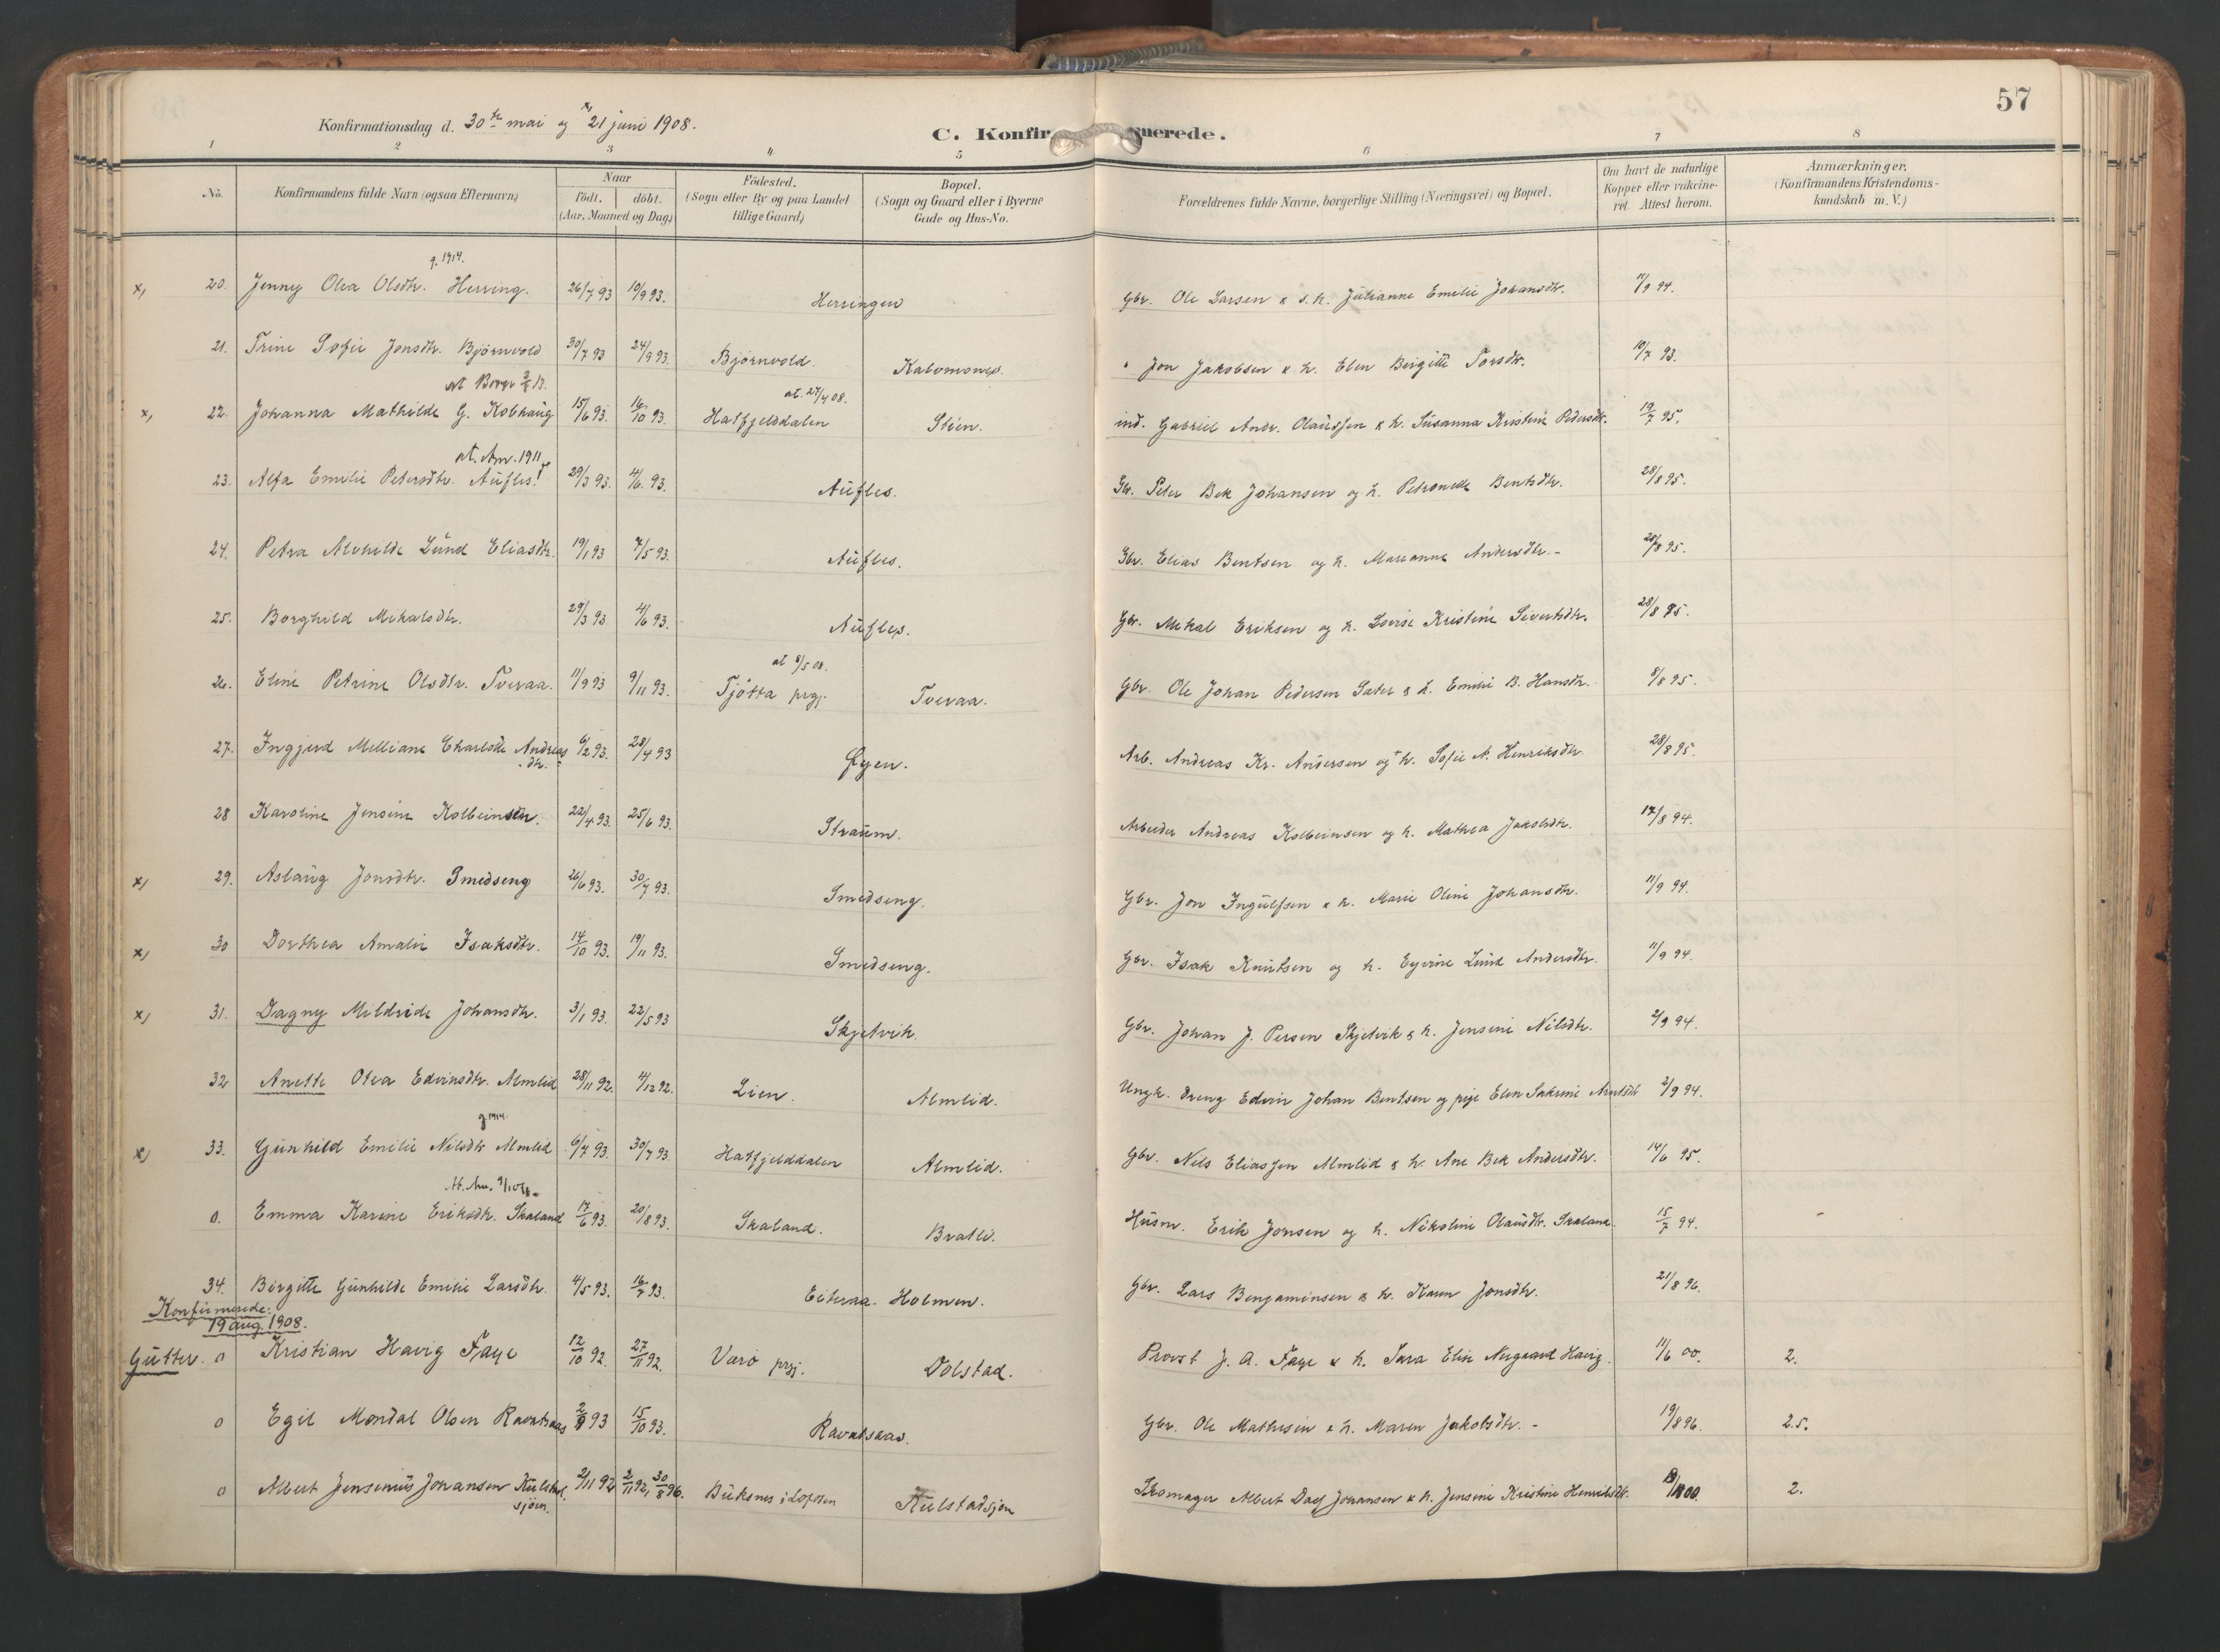 57
Konfirmationsdag d. 30te mai og x) 21 juni 1908.
C. Konfirmerede.
1 2 3 4 5 6 7 8
No. Konfirmandens fulde Navn (ogsaa Efternavn) Naar födt. döbt. (Aar, Maaned og Dag) Födested. (Sogn eller By og paa Landet tillige Gaard) Bopæl. (Sogn og Gaard eller i Byerne Gade og Hus-No. Forældrenes fulde Navne, borgerlige Stilling (Næringsvei) og Bopæl. Om havt de naturlige Kopper eller vakcineret. Attest herom. Anmærkninger, (Konfirmandens Kristendomskundskab m. V.)
g. 1914.
x) 20. Jenny Olea Olsdtr. Herring. 26/7 93 10/9 93. Herringen Gbr. Ole Larsen & h. Julianne Emilie Johansdtr. 11/9 94.
21. Trine Sofie Jonsdtr. Björnvold 30/7 93 24/9 93. Björnvold. Kalvmones. " Jon Jakobsen & h. Elen Birgitte Torsdtr. 10/7 93.
at. 27/4 08.
x) 22. Johanna Mathilde G. Kobhaug 15/6 93. 16/10 93. Hatfjelddalen Stien. ind. Gabriel Andr. Olaussen & h. Susanna Kristine Pedersdtr. 19/7 95.
at. Am. 1911
23. Alfa Emilie Petersdtr. Aufles. 29/3 93. 4/6 93. Aufles. Gbr. Peter Bek Johansen og h. Petronelle Bentsdtr. 28/8 95.
24. Petra Alvhilde Lund Eliasdtr. 19/1 93 7/5 93. Aufles. Gbr. Elias Bentsen og h. Marianna Andersdtr. - 28/8 95.
25. Borghild Mikalsdtr. 29/3 93 4/6 93. Aufles. Gbr. Mikal Eriksen og h. Lovise Kristine Sivertsdtr. 28/8 95.
at 8/5 08.
26. Eline Petrine Olsdtr. Tveraa. 11/9 93 9/11 93. Tjötta prgj. Tveraa. Gbr. Ole Johan Pedersen Sæter & h. Emilie B. Hansdtr. 8/8 95.
27. Ingjerd Milliane Charlotte Andreasdtr. 6/2 93. 23/4 93 Öyen. Arb. Andreas Kr. Andersen og h. Sofie A. Henriksdtr. 28/8 95.
28 Karoline Jensine Kolbeinsdtr. 22/4 93. 25/6 93. Straum. Arbeider Andreas Kolbeinsen og h. Mathea Jakobsdtr. 17/8 94.
x) 29. Aslaug Jonsdtr. Smedseng 26/6 93. 30/7 93. Smedseng. Gbr. Jon Ingulfsen & h. Marie Oline Johansdtr. 11/9 94.
x) 30 Dorthea Amalie Isaksdtr. 14/10 93. 19/11 93. Smedseng. Gbr. Isak Knutsen og h. Eyvine Lund Andersdtr. 11/9 94.
x) 31. Dagny Mildride Johansdtr. 3/1 93. 22/5 93 Skjetvik. Gbr. Johan J. Persen Skjetvik & h. Jensine Nilsdtr. 2/9 94.
32 Anette Olea Edvinsdtr. Almlid 28/11 92. 4/12 92. Lien. Almlid. Ungk. Dreng Edvin Johan Bentsen og pige Elen Sakrine Arntsdtr 2/9 94.
g 1914.
x) 33. Gunhild Emilie Nilsdtr Almlid 6/7 93. 30/7 93. Hatfjelddalen Almlid. Gbr. Nils Eliassen Almlid & h. Ane Bek Andersdtr. 14/6 95.
0. Emma Karine Eriksdtr. Skaland 17/6 93. 20/8 93. Skaland. Bratli. Husm. Erik Jonsen og h. Nikoline Olausdtr. Skaland. 15/7 94.
34. Birgitte Gunhilde Emilie Larsdtr. 4/5 93. 16/7 93. Eiteraa- Holmen. Gbr. Lars Benjaminsen & h. Karen Jonsdtr. 21/8 96.
Konfirmerede.
19 aug. 1908.
Gutter. 0 Kristian Havig Faye 12/10 92. 27/11 92. Værö prgj. Dolstad. Provst J. A. Faye & h. Sara Elise Nygaard Havig. 11/6 00. 2.
0 Egil Mondal Olsen Ravatsaas 2/9 93 15/10 93. Ravatsaas. Gbr. Ole Mathisen & h. Maren Jakobsdtr. - 19/8 96. 2.5.
0 Albert Jensenius Johansen Kulstadsjöen. 2/11 92 30/8 96. Buksnes i Lofoten Kulstadsjöen Skomager Albert Johansen & h. Jensine Kristine Henriksdtr. 2.